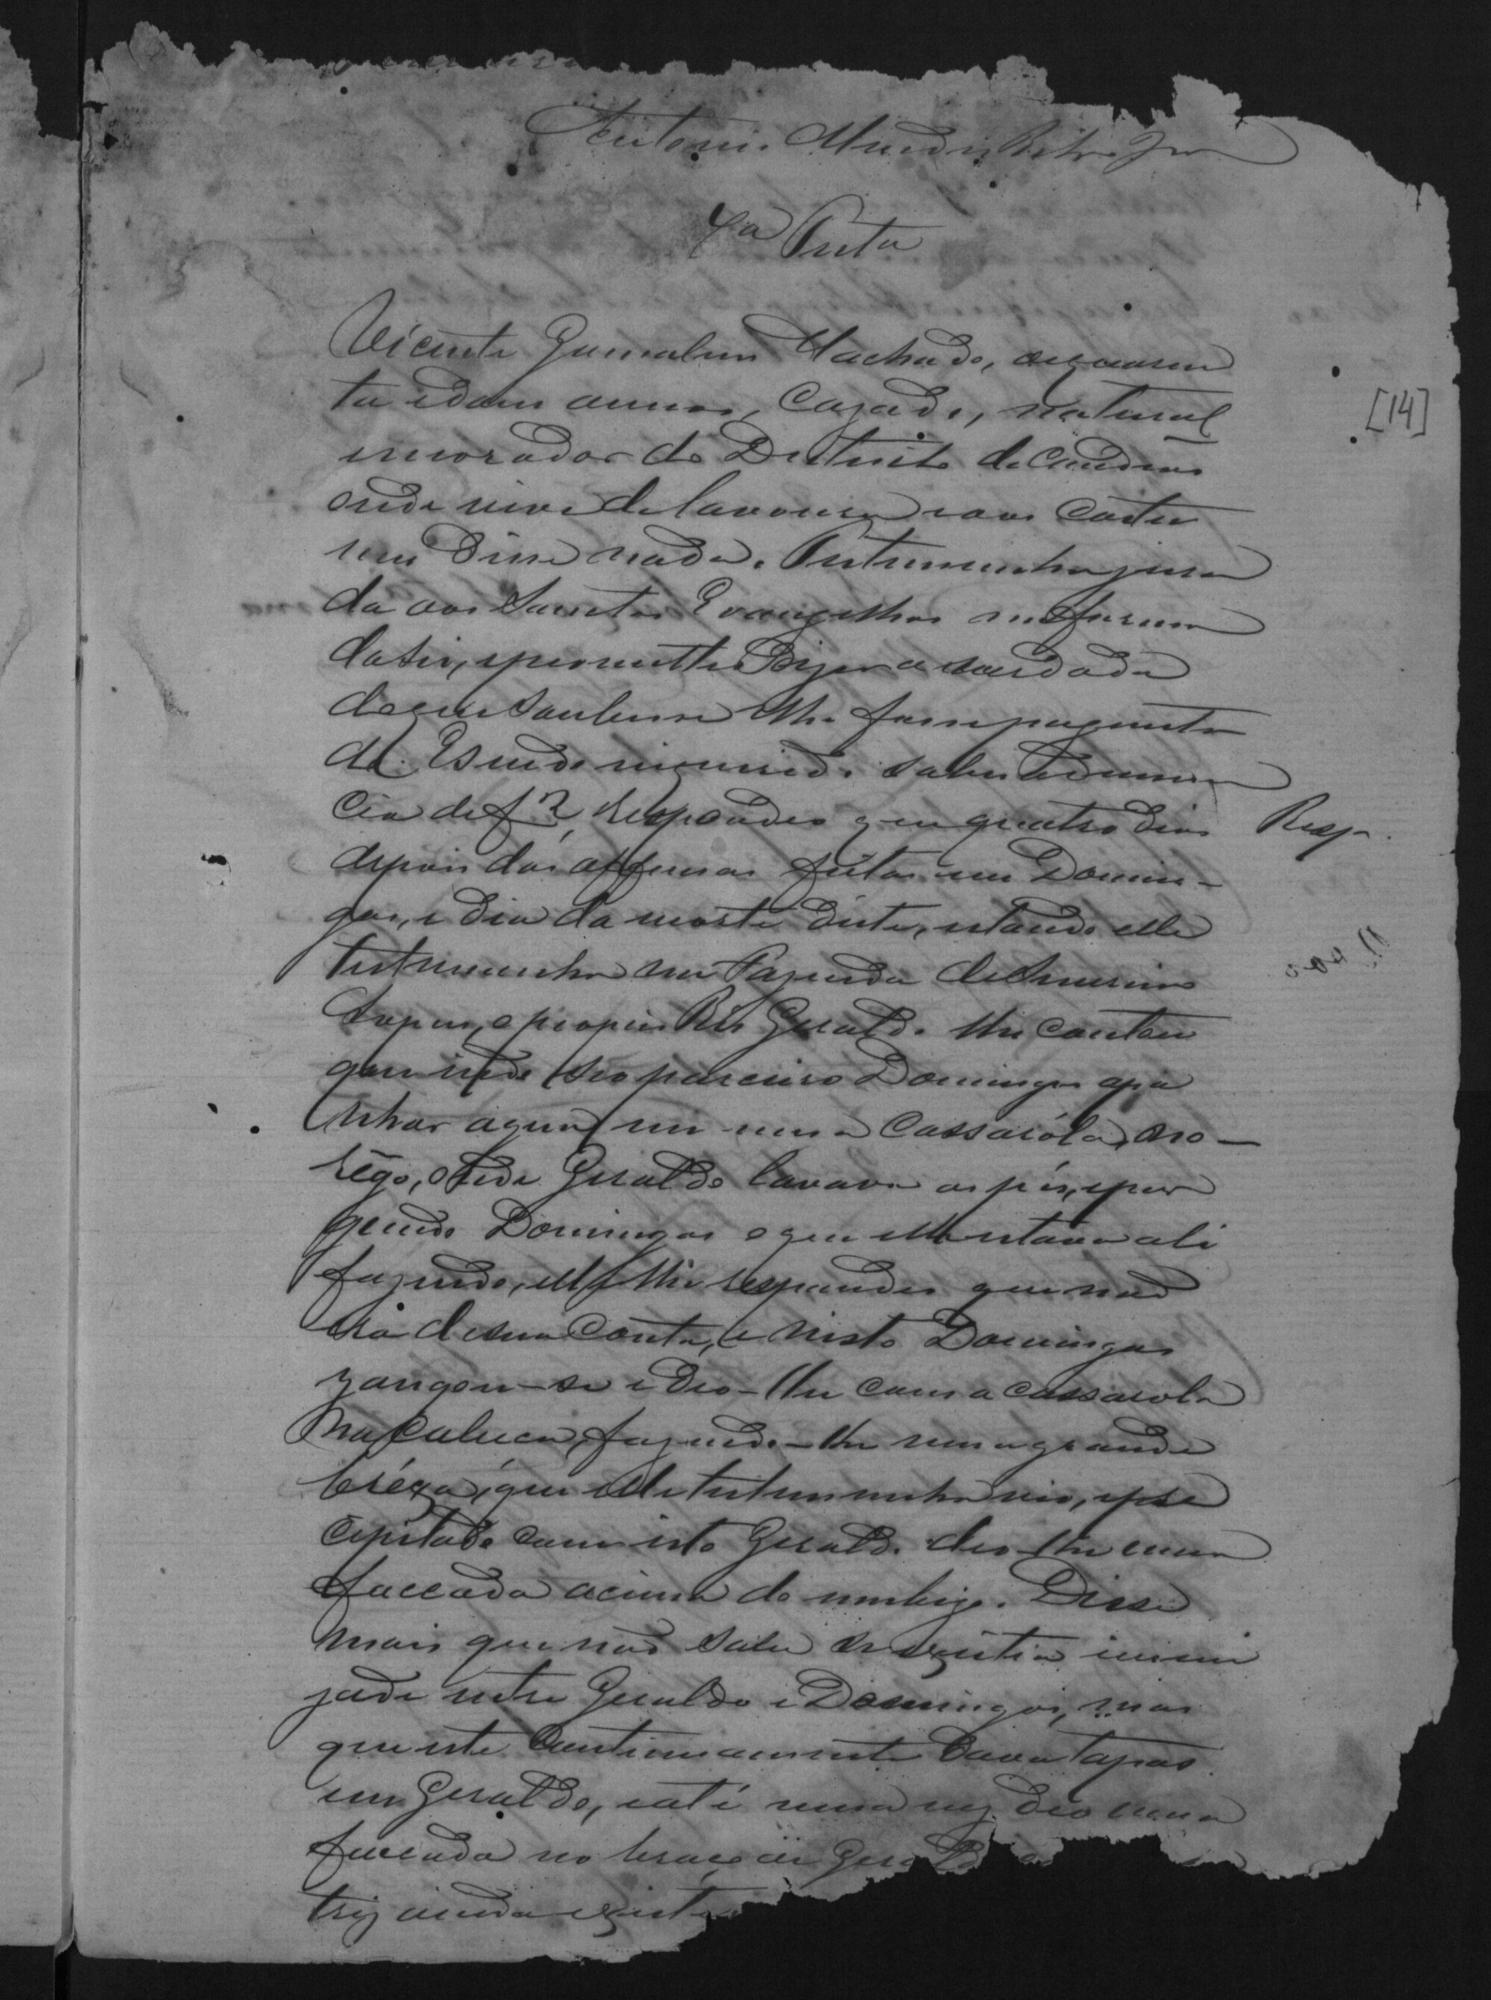 Antonio Mendes
4a Testa
Vicente Gonçalves Machado, de quaren
ta e dous annos, Cazado, natural
e morador do Destricto de Candeas
onde vive de lavoura e aos costu
mes disse nada. Testemunha jura
da aos Santos Evangelhos na forma
da Lei, e prometteo dizer a verdade
do que soubesse e lhe fosse perguntado
E sendo inquirido sobre a denun
cia de f 2, Respondeo que quatro dias
depois das offensas feitas em Domin-
gos, e dia da morte deste, estando elle
testemunha na Fazenda de
Lopes, o proprio Réo Geraldo lhe contou
que indo seo parceiro Domingos apa
nhar agua em uma Cassaróla, no
rêgo, onde Geraldo lavava os pés, e per
gundo Domingos o que elle estava ali
fazendo, elle lhe respondeo que não
era de sua Conta, e nisto Domingos
zangou-se e deo-lhe com a cassarola
na Cabeça, fazendo-lhe uma grande
bréxa, que elle testemunha vio, e pre
cipitado com isto Geraldo deo-lhe uma
faccada acima do umbigo. Disse
mais que não sabe se existia inimi
zade entre Geraldo e Domingos, mas
que este Continuamente dava tapas
em Geraldo, e até uma vez deo uma
faccada no braço de Geraldo
triz ainda existe
[14]
Resp.